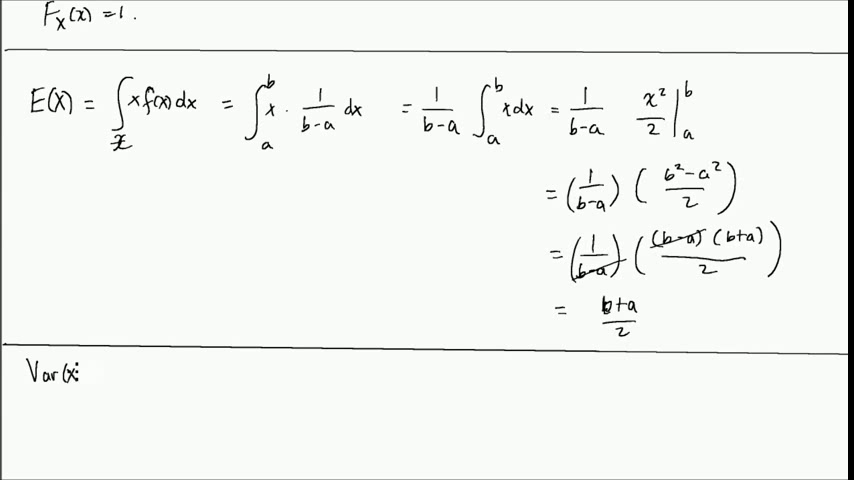 F_X(x) = 1.
E(X) = ∫_𝒳 x f(x) dx = ∫_a^b x · 1/(b-a) dx = 1/(b-a) ∫_a^b x dx = 1/(b-a) x²/2 |_a^b
= (1/(b-a)) ((b²-a²)/2)
= (1/(b-a)) ((b-a)(b+a)/2)
= (b+a)/2
Var(x